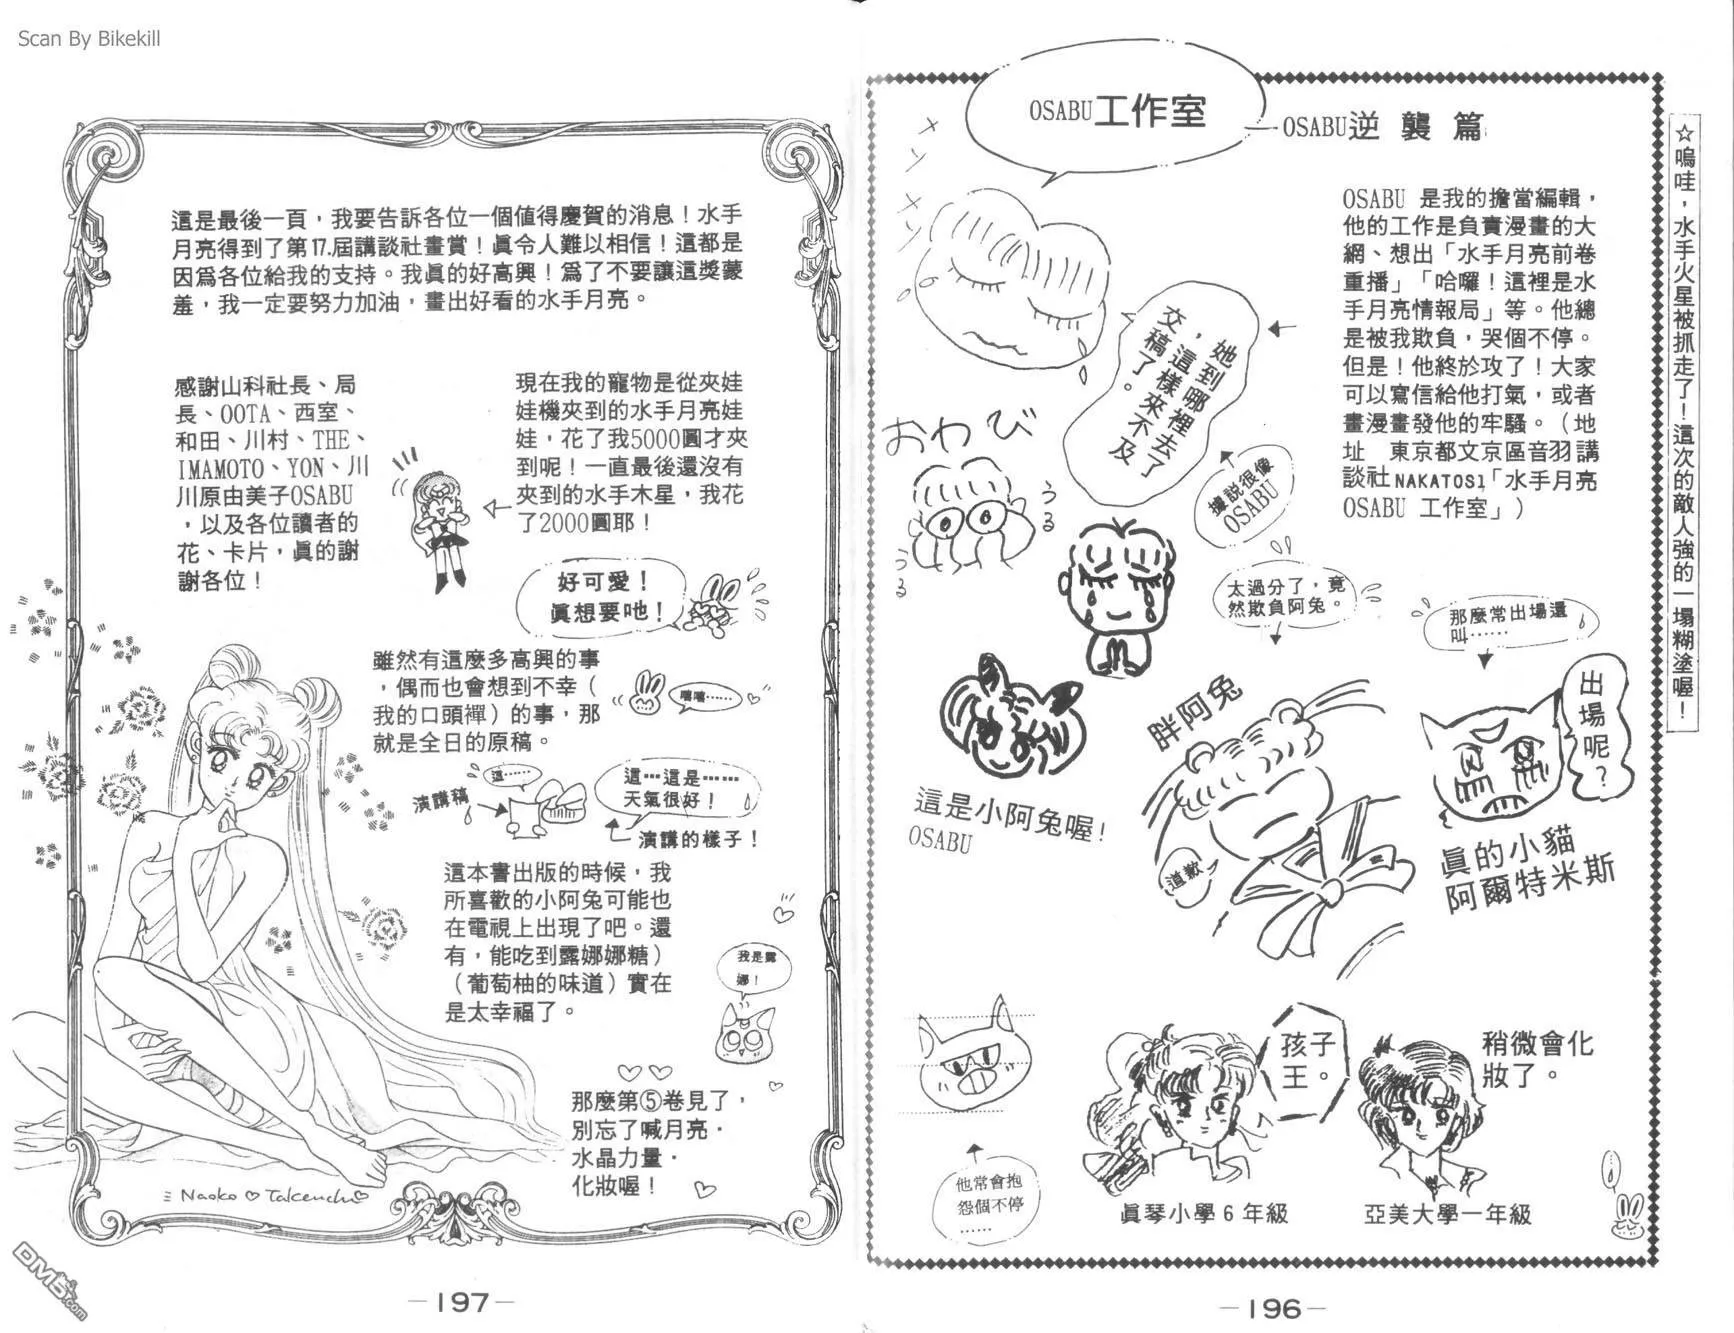 Scan By Bikekill
☆嗚哇，水手火星被抓走了！這次的敵人強的一塌糊塗喔！
OSABU工作室
OSABU逆襲篇
OSABU 是我的擔當編輯，
他的工作是負責漫畫的大
網、想出「水手月亮前卷
重播」「哈囉！這裡是水
手月亮情報局」等。他總
是被我欺負，哭個不停。
但是！他終於攻了！大家
可以寫信給他打氣，或者
畫漫畫發他的牢騷。（地
址　東京都文京區音羽講
談社NAKATOSI「水手月亮
OSABU 工作室」）
她到哪裡去了
，這樣來不及
交稿了。
據說很像
OSABU
おわび
うる
うる
太過分了，竟
然欺負阿兔。
那麼常出場還
叫……
出場呢？
胖阿兔
道歉
這是小阿兔喔！
OSABU
眞的小貓
阿爾特米斯
孩子
王。
稍微會化
妝了。
他常會抱
怨個不停
……
眞琴小學6年級
亞美大學一年級
—196—
這是最後一頁，我要告訴各位一個值得慶賀的消息！水手
月亮得到了第17.屆講談社畫賞！眞令人難以相信！這都是
因爲各位給我的支持。我眞的好高興！爲了不要讓這獎蒙
羞，我一定要努力加油，畫出好看的水手月亮。
感謝山科社長、局
長、OOTA、西室、
和田、川村、THE、
IMAMOTO、YON、川
川原由美子OSABU
，以及各位讀者的
花、卡片，眞的謝
謝各位！
現在我的寵物是從夾娃
娃機夾到的水手月亮娃
娃，花了我5000圓才夾
到呢！一直最後還沒有
夾到的水手木星，我花
了2000圓耶！
好可愛！
眞想要吔！
雖然有這麼多高興的事
，偶而也會想到不幸（
我的口頭禪）的事，那
就是全日的原稿。
嘻嘻……
演講稿
這……
這…這是……
天氣很好！
演講的樣子！
這本書出版的時候，我
所喜歡的小阿兔可能也
在電視上出現了吧。還
有，能吃到露娜娜糖）
（葡萄柚的味道）實在
是太幸福了。
我是露
娜！
那麼第⑤卷見了，
別忘了喊月亮．
水晶力量．
化妝喔！
Naoko♡Takeuchi♡
DM5.com
—197—